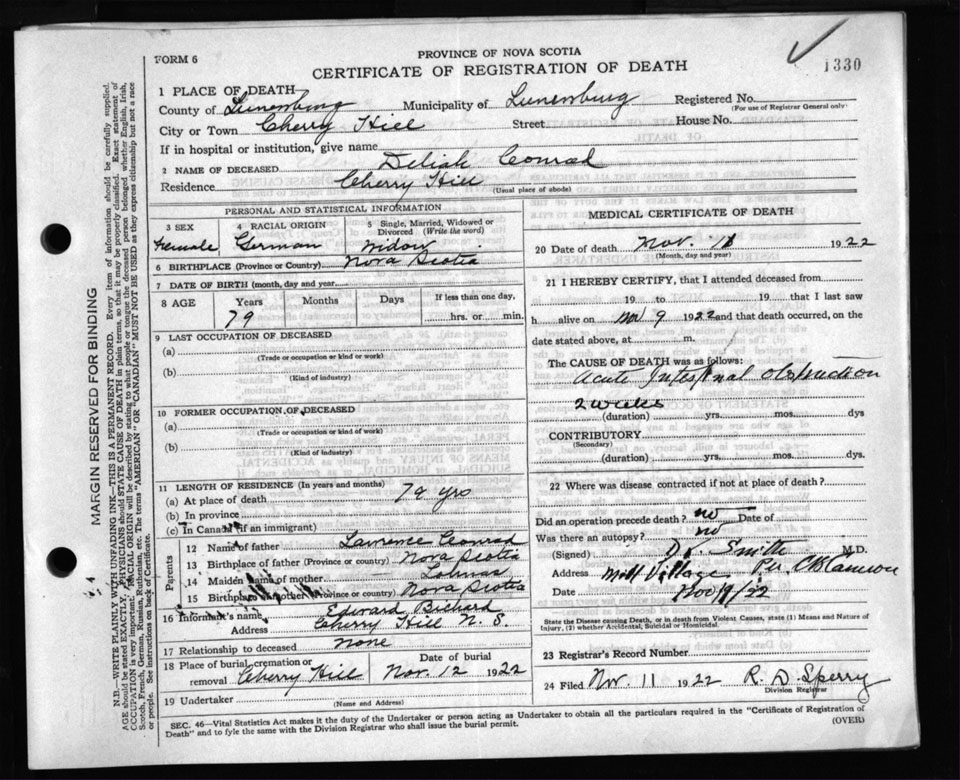 PROVINCE OF NOVA SCOTIA
FORM 6
CERTIFICATE OF REGISTRATION OF DEATH
1330
1 PLACE OF DEATH
County of Lunenburg Municipality of Lunenburg Registered No.
(For use of Registrar General only)
City or Town Cherry Hill Street House No.
If in hospital or institution, give name
2 NAME OF DECEASED Deliah Conrad
Residence Cherry Hill
(Usual place of abode)
PERSONAL AND STATISTICAL INFORMATION
3 SEX 4 RACIAL ORIGIN 5 Single, Married, Widowed or Divorced (Write the word)
Female German Widow
6 BIRTHPLACE (Province or Country) Nova Scotia
7 DATE OF BIRTH (month, day and year)
8 AGE Years Months Days If less than one day,
79 hrs. or min.
9 LAST OCCUPATION OF DECEASED
(a)
(Trade or occupation or kind of work)
(b)
(Kind of industry)
10 FORMER OCCUPATION OF DECEASED
(a)
(Trade or occupation or kind of work)
(b)
(Kind of industry)
11 LENGTH OF RESIDENCE (In years and months)
(a) At place of death 79 yrs
(b) In province
(c) In Canada (if an immigrant)
Parents
12 Name of father Lawrence Conrad
13 Birthplace of father (Province or country) Nova Scotia
14 Maiden name of mother
15 Birthplace of mother (Province or country) Nova Scotia
16 Informant's name Edward
Address Cherry Hill N. S.
17 Relationship to deceased none
18 Place of burial, cremation or removal Cherry Hill Date of burial Nov. 12 1922
19 Undertaker
(Name and Address)
MEDICAL CERTIFICATE OF DEATH
20 Date of death Nov. 1922
(Month, day and year)
21 I HEREBY CERTIFY, that I attended deceased from
19 to 19 that I last saw
h alive on 9 1922 and that death occurred, on the
date stated above, at m.
The CAUSE OF DEATH was as follows:
Acute Intestinal obstruction
2 weeks
(duration) yrs. mos. dys
CONTRIBUTORY
(Secondary)
(duration) yrs. mos. dys.
22 Where was disease contracted if not at place of death?
Did an operation precede death? no Date of
Was there an autopsy? no
(Signed) Smith M.D.
Address Mill Village Per
Date Nov /22
State the Disease causing Death, or in death from Violent Causes, state (1) Means and Nature of
Injury, (2) whether Accidental, Suicidal or Homicidal.
23 Registrar's Record Number
24 Filed Nov. 11 1922 R. D. Sperry
Division Registrar
SEC. 46—Vital Statistics Act makes it the duty of the Undertaker or person acting as Undertaker to obtain all the particulars required in the "Certificate of Registration of
Death" and to fyle the same with the Division Registrar who shall issue the burial permit. (OVER)
MARGIN RESERVED FOR BINDING
N.B.—WRITE PLAINLY WITH UNFADING INK—THIS IS A PERMANENT RECORD. Every item of information should be carefully supplied.
AGE should be stated EXACTLY. PHYSICIANS should STATE CAUSE OF DEATH in plain terms, so that it may be properly classified. Exact statement of
OCCUPATION is very important. RACIAL ORIGIN will be described by stating to what people or tongue the deceased person belonged whether English, Irish,
Scotch, French, German, Russian, Ruthenian, etc. The terms "AMERICAN" OR "CANADIAN" MUST NOT BE USED as they express citizenship but not a race
or people. See instructions on back of Certificate.